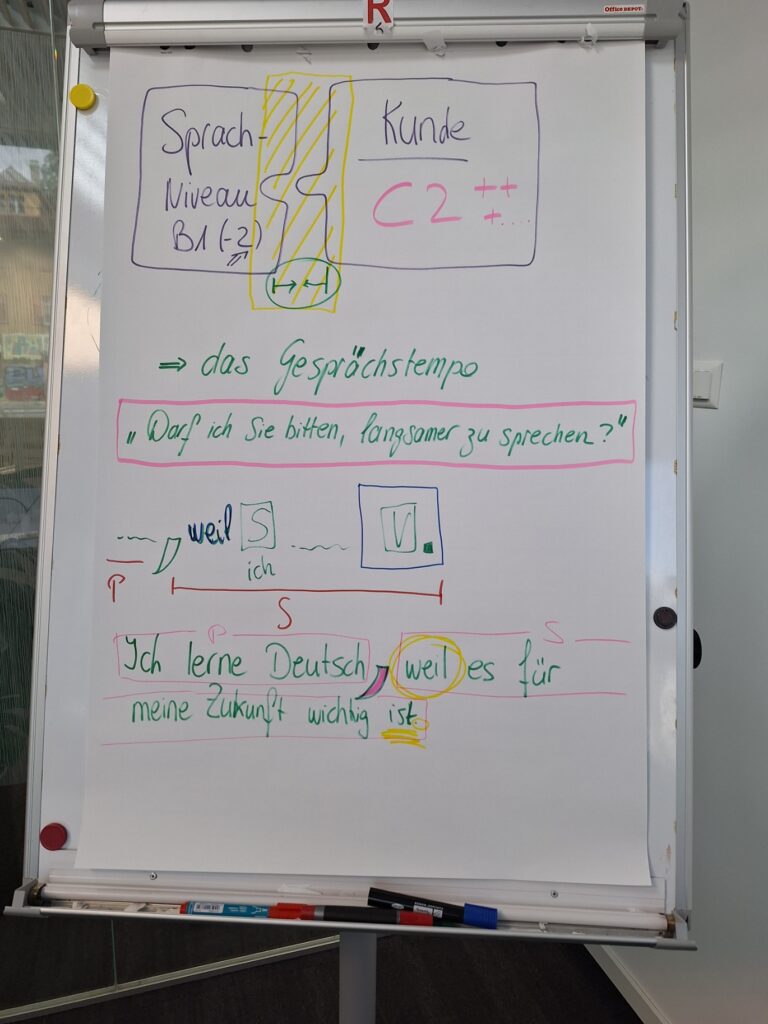 R
Office DEPOT
Sprach-
Niveau
B1 (-2)
Kunde
C2 ++
+....
⇒ das Gesprächstempo
„Darf ich Sie bitten, langsamer zu sprechen?"
....., weil S ..... V.
ich
P
S
P S
Ich lerne Deutsch, weil es für
meine Zukunft wichtig ist.